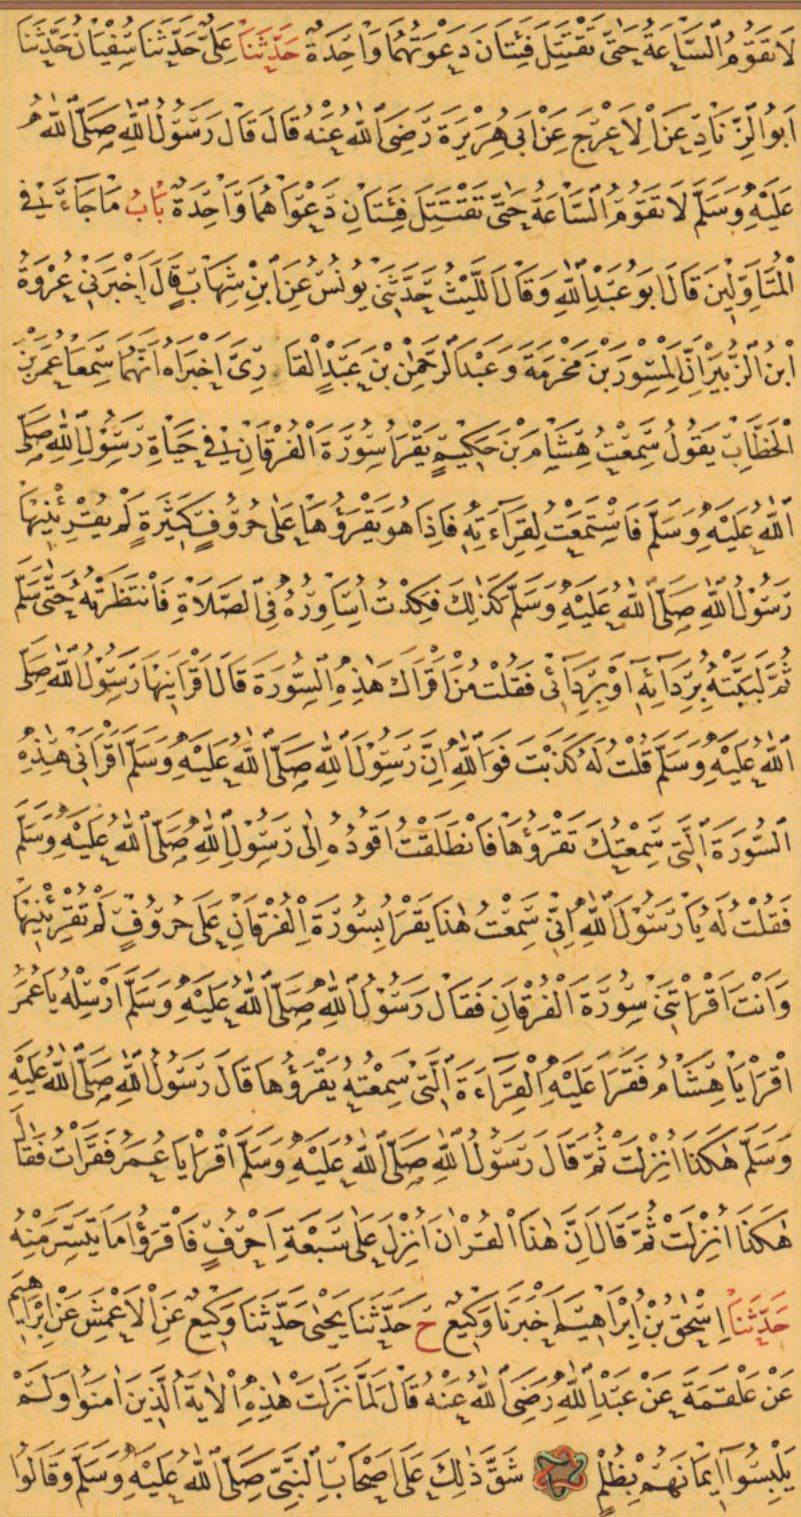 لَا تَقُومُ السَّاعَةُ حَتَّى تَقْتَتِلَ فِئَتَانِ دَعْوَتُهُمَا وَاحِدَةٌ حَدَّثَنَا عَلِيٌّ حَدَّثَنَا سُفْيَانُ حَدَّثَنَا
اَبُو الزِّنَادِ عَنِ الْاَعْرَجِ عَنْ اَبِي هُرَيْرَةَ رَضِيَ اللهُ عَنْهُ قَالَ قَالَ رَسُولُ اللهِ صَلَّى اللهُ
عَلَيْهِ وَسَلَّمَ لَا تَقُومُ السَّاعَةُ حَتَّى تَقْتَتِلَ فِئَتَانِ دَعْوَاهُمَا وَاحِدَةٌ بَابُ مَا جَاءَ فِي
الْمُتَاَوِّلِينَ قَالَ اَبُو عَبْدِ اللهِ وَقَالَ اللَّيْثُ حَدَّثَنِي يُونُسُ عَنِ ابْنِ شِهَابٍ قَالَ اَخْبَرَنِي عُرْوَةُ
ابْنُ الزُّبَيْرِ اَنَّ الْمِسْوَرَ بْنَ مَخْرَمَةَ وَعَبْدَ الرَّحْمٰنِ بْنَ عَبْدٍ الْقَارِيَّ اَخْبَرَاهُ اَنَّهُمَا سَمِعَا عُمَرَ بْنَ
الْخَطَّابِ يَقُولُ سَمِعْتُ هِشَامَ بْنَ حَكِيمٍ يَقْرَأُ سُورَةَ الْفُرْقَانِ فِي حَيَاةِ رَسُولِ اللهِ صَلَّى
اللهُ عَلَيْهِ وَسَلَّمَ فَاسْتَمَعْتُ لِقِرَاءَتِهِ فَاِذَا هُوَ يَقْرَؤُهَا عَلَى حُرُوفٍ كَثِيرَةٍ لَمْ يُقْرِئْنِيهَا
رَسُولُ اللهِ صَلَّى اللهُ عَلَيْهِ وَسَلَّمَ كَذٰلِكَ فَكِدْتُ اُسَاوِرُهُ فِي الصَّلَاةِ فَانْتَظَرْتُهُ حَتَّى سَلَّمَ
ثُمَّ لَبَّبْتُهُ بِرِدَائِهِ اَوْ بِرِدَائِي فَقُلْتُ مَنْ اَقْرَاَكَ هٰذِهِ السُّورَةَ قَالَ اَقْرَاَنِيهَا رَسُولُ اللهِ صَلَّى
اللهُ عَلَيْهِ وَسَلَّمَ قُلْتُ لَهُ كَذَبْتَ فَوَاللهِ اِنَّ رَسُولَ اللهِ صَلَّى اللهُ عَلَيْهِ وَسَلَّمَ اَقْرَاَنِي هٰذِهِ
السُّورَةَ الَّتِي سَمِعْتُكَ تَقْرَؤُهَا فَانْطَلَقْتُ اَقُودُهُ اِلَى رَسُولِ اللهِ صَلَّى اللهُ عَلَيْهِ وَسَلَّمَ
فَقُلْتُ لَهُ يَا رَسُولَ اللهِ اِنِّي سَمِعْتُ هٰذَا يَقْرَأُ بِسُورَةِ الْفُرْقَانِ عَلَى حُرُوفٍ لَمْ تُقْرِئْنِيهَا
وَاَنْتَ اَقْرَأْتَنِي سُورَةَ الْفُرْقَانِ فَقَالَ رَسُولُ اللهِ صَلَّى اللهُ عَلَيْهِ وَسَلَّمَ اَرْسِلْهُ يَا عُمَرُ
اقْرَأْ يَا هِشَامُ فَقَرَاَ عَلَيْهِ الْقِرَاءَةَ الَّتِي سَمِعْتُهُ يَقْرَؤُهَا قَالَ رَسُولُ اللهِ صَلَّى اللهُ عَلَيْهِ
وَسَلَّمَ هٰكَذَا اُنْزِلَتْ ثُمَّ قَالَ رَسُولُ اللهِ صَلَّى اللهُ عَلَيْهِ وَسَلَّمَ اقْرَأْ يَا عُمَرُ فَقَرَأْتُ فَقَالَ
هٰكَذَا اُنْزِلَتْ ثُمَّ قَالَ اِنَّ هٰذَا الْقُرْاٰنَ اُنْزِلَ عَلَى سَبْعَةِ اَحْرُفٍ فَاقْرَؤُا مَا تَيَسَّرَ مِنْهُ
حَدَّثَنَا اِسْحٰقُ بْنُ اِبْرَاهِيمَ اَخْبَرَنَا وَكِيعٌ ح حَدَّثَنَا يَحْيٰى حَدَّثَنَا وَكِيعٌ عَنِ الْاَعْمَشِ عَنْ اِبْرَاهِيمَ
عَنْ عَلْقَمَةَ عَنْ عَبْدِ اللهِ رَضِيَ اللهُ عَنْهُ قَالَ لَمَّا نَزَلَتْ هٰذِهِ الْاٰيَةُ الَّذِينَ اٰمَنُوا وَلَمْ
يَلْبِسُوا اِيمَانَهُمْ بِظُلْمٍ شَقَّ ذٰلِكَ عَلَى اَصْحَابِ النَّبِيِّ صَلَّى اللهُ عَلَيْهِ وَسَلَّمَ وَقَالُوا